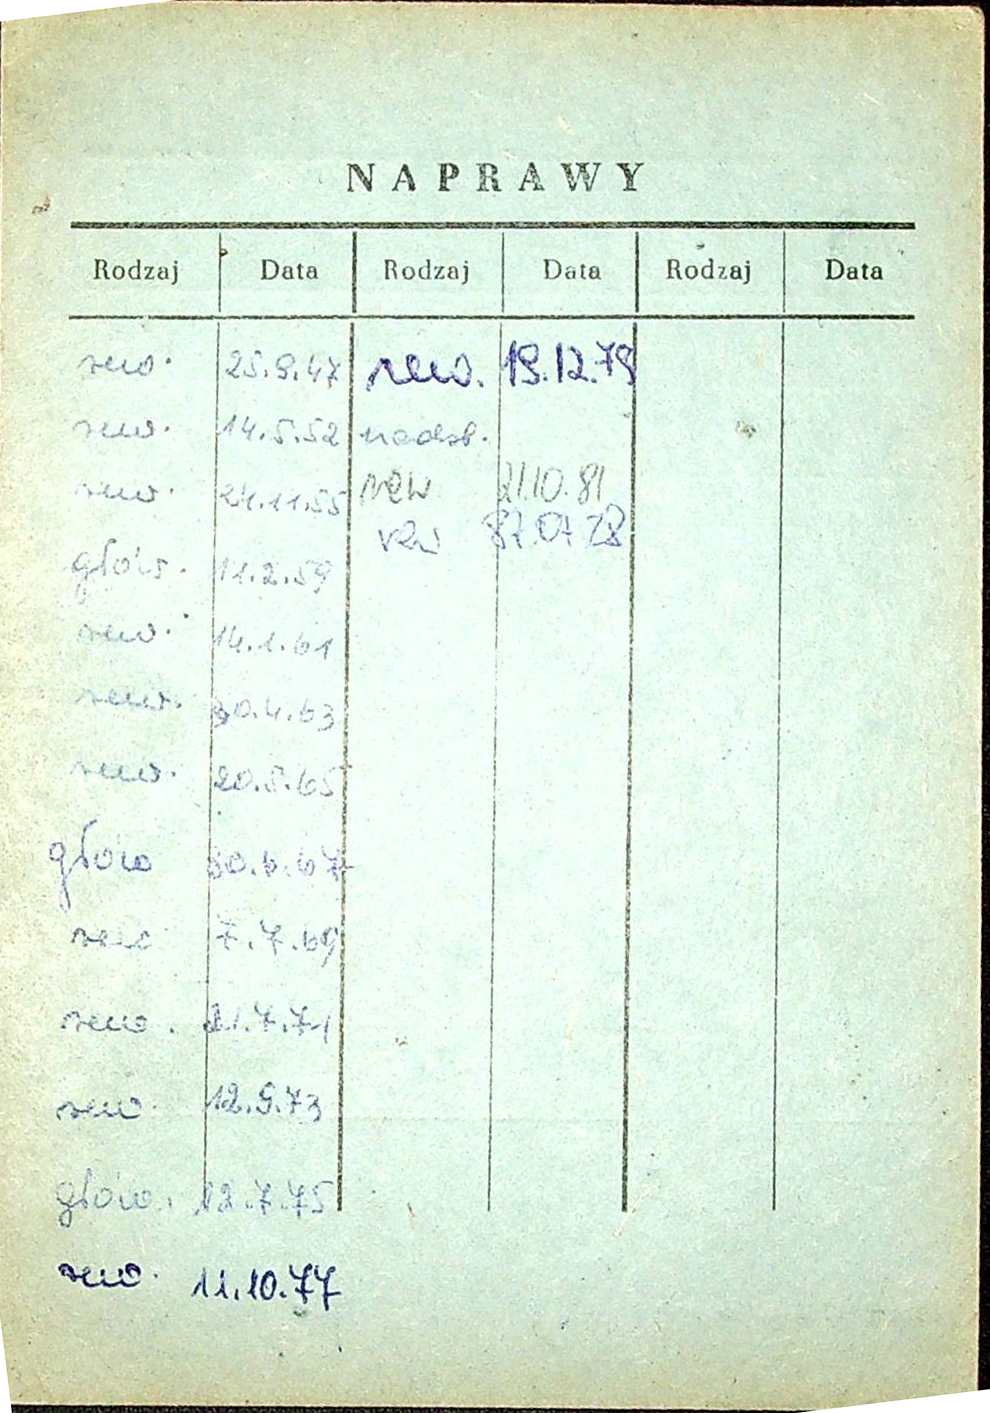 NAPRAWY
Rodzaj Data Rodzaj Data Rodzaj Data
rew. 25.9.47 rew. 19.12.79
rew. 14.5.52 nadsł.
rew. 24.11.55 rew 21.10.81
rew 87.07.28
głów. 11.2.59
rew. 14.1.61
rew. 30.4.63
rew. 20.5.65
głów 30.6.67
rew 7.7.69
rew. 21.7.71
rew. 12.9.73
głów. 12.7.75
rew. 11.10.77